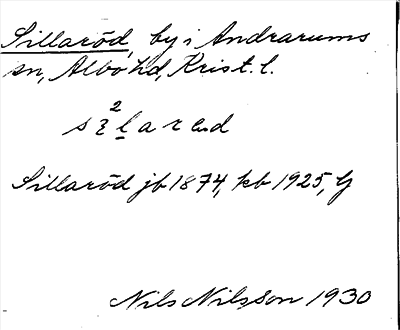 Sillaröd, by i Andrarums
sn, Albo hd, Krist. l.
Sillaröd jb 1874, kb 1925, G
Nils Nilsson 1930